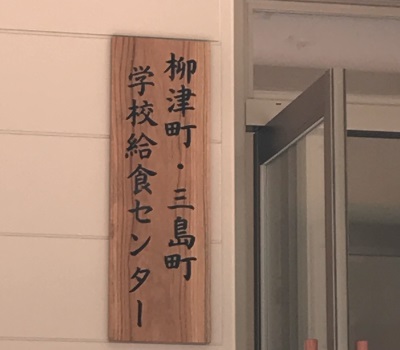 柳津町・三島町
学校給食センター